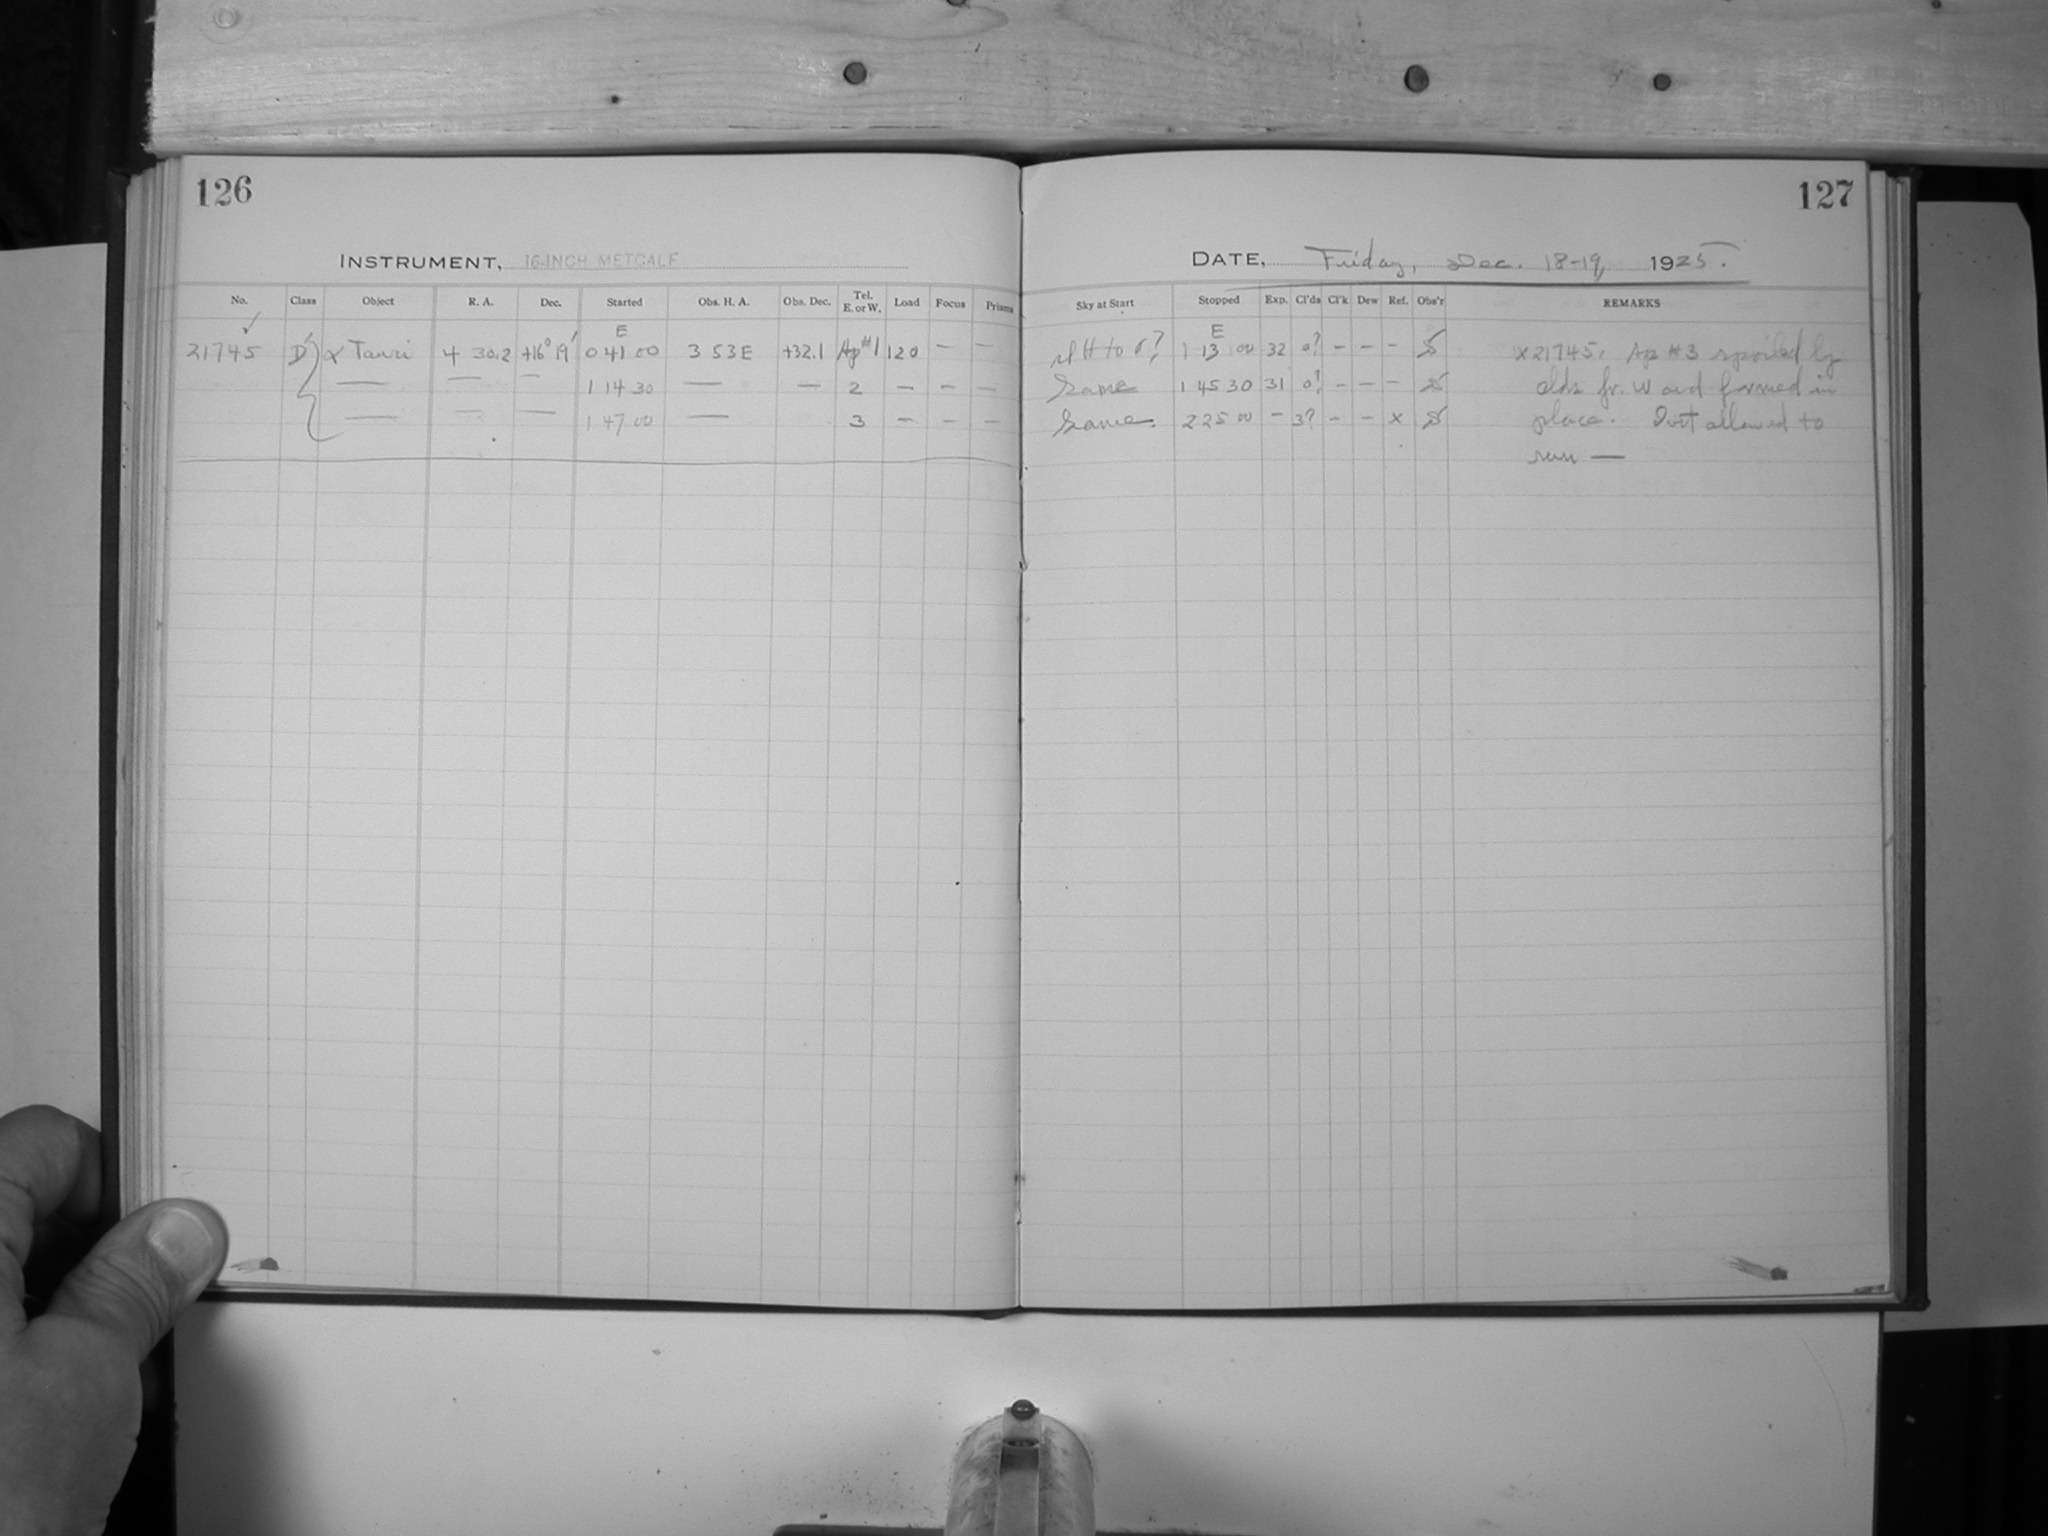 126
127
INSTRUMENT, 16-INCH METCALF
DATE, Friday, Dec. 18-19, 1925.
No. Class Object R. A. Dec. Started Obs. H. A. Obs. Dec. Tel. E. or W. Load Focus Prisms
Sky at Start Stopped Exp. Cl'ds Cl'k Dew Ref. Obs'r REMARKS
E
E
21745 D' α Tauri 4 30.2 +16° 19' 0 41 00 3 53 E +32.1 Ap #1 120 — —
to 1 13 00 32 0? – – – x21745, Ap #3 spoiled by
— — — 1 14 30 — — 2 – – –
Same 1 45 30 31 0? – – – clds fr. W and formed in
— — — 1 47 00 — 3 – – –
Same. 2 25 00 – 3? – – x place. allowed to
run —